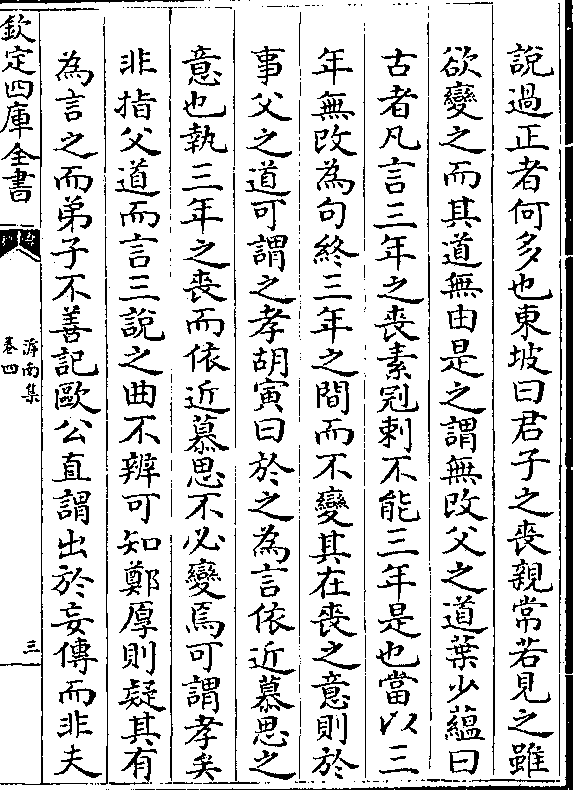 說過正者何多也東坡曰君子之喪親常若見之雖
欲變之而其道無由是之謂無改父之道葉少蘊曰
古者凡言三年之喪素冠刺不能三年是也當以三
年無改為句終三年之間而不變其在喪之意則於
事父之道可謂之孝胡寅曰於之為言依近慕思之
意也執三年之喪而依近慕思不必變焉可謂孝矣
非指父道而言三說之曲不辨可知鄭厚則疑其有
為言之而弟子不善記歐公直謂出於妄傳而非夫
欽定四庫全書
滹南集
卷四
三